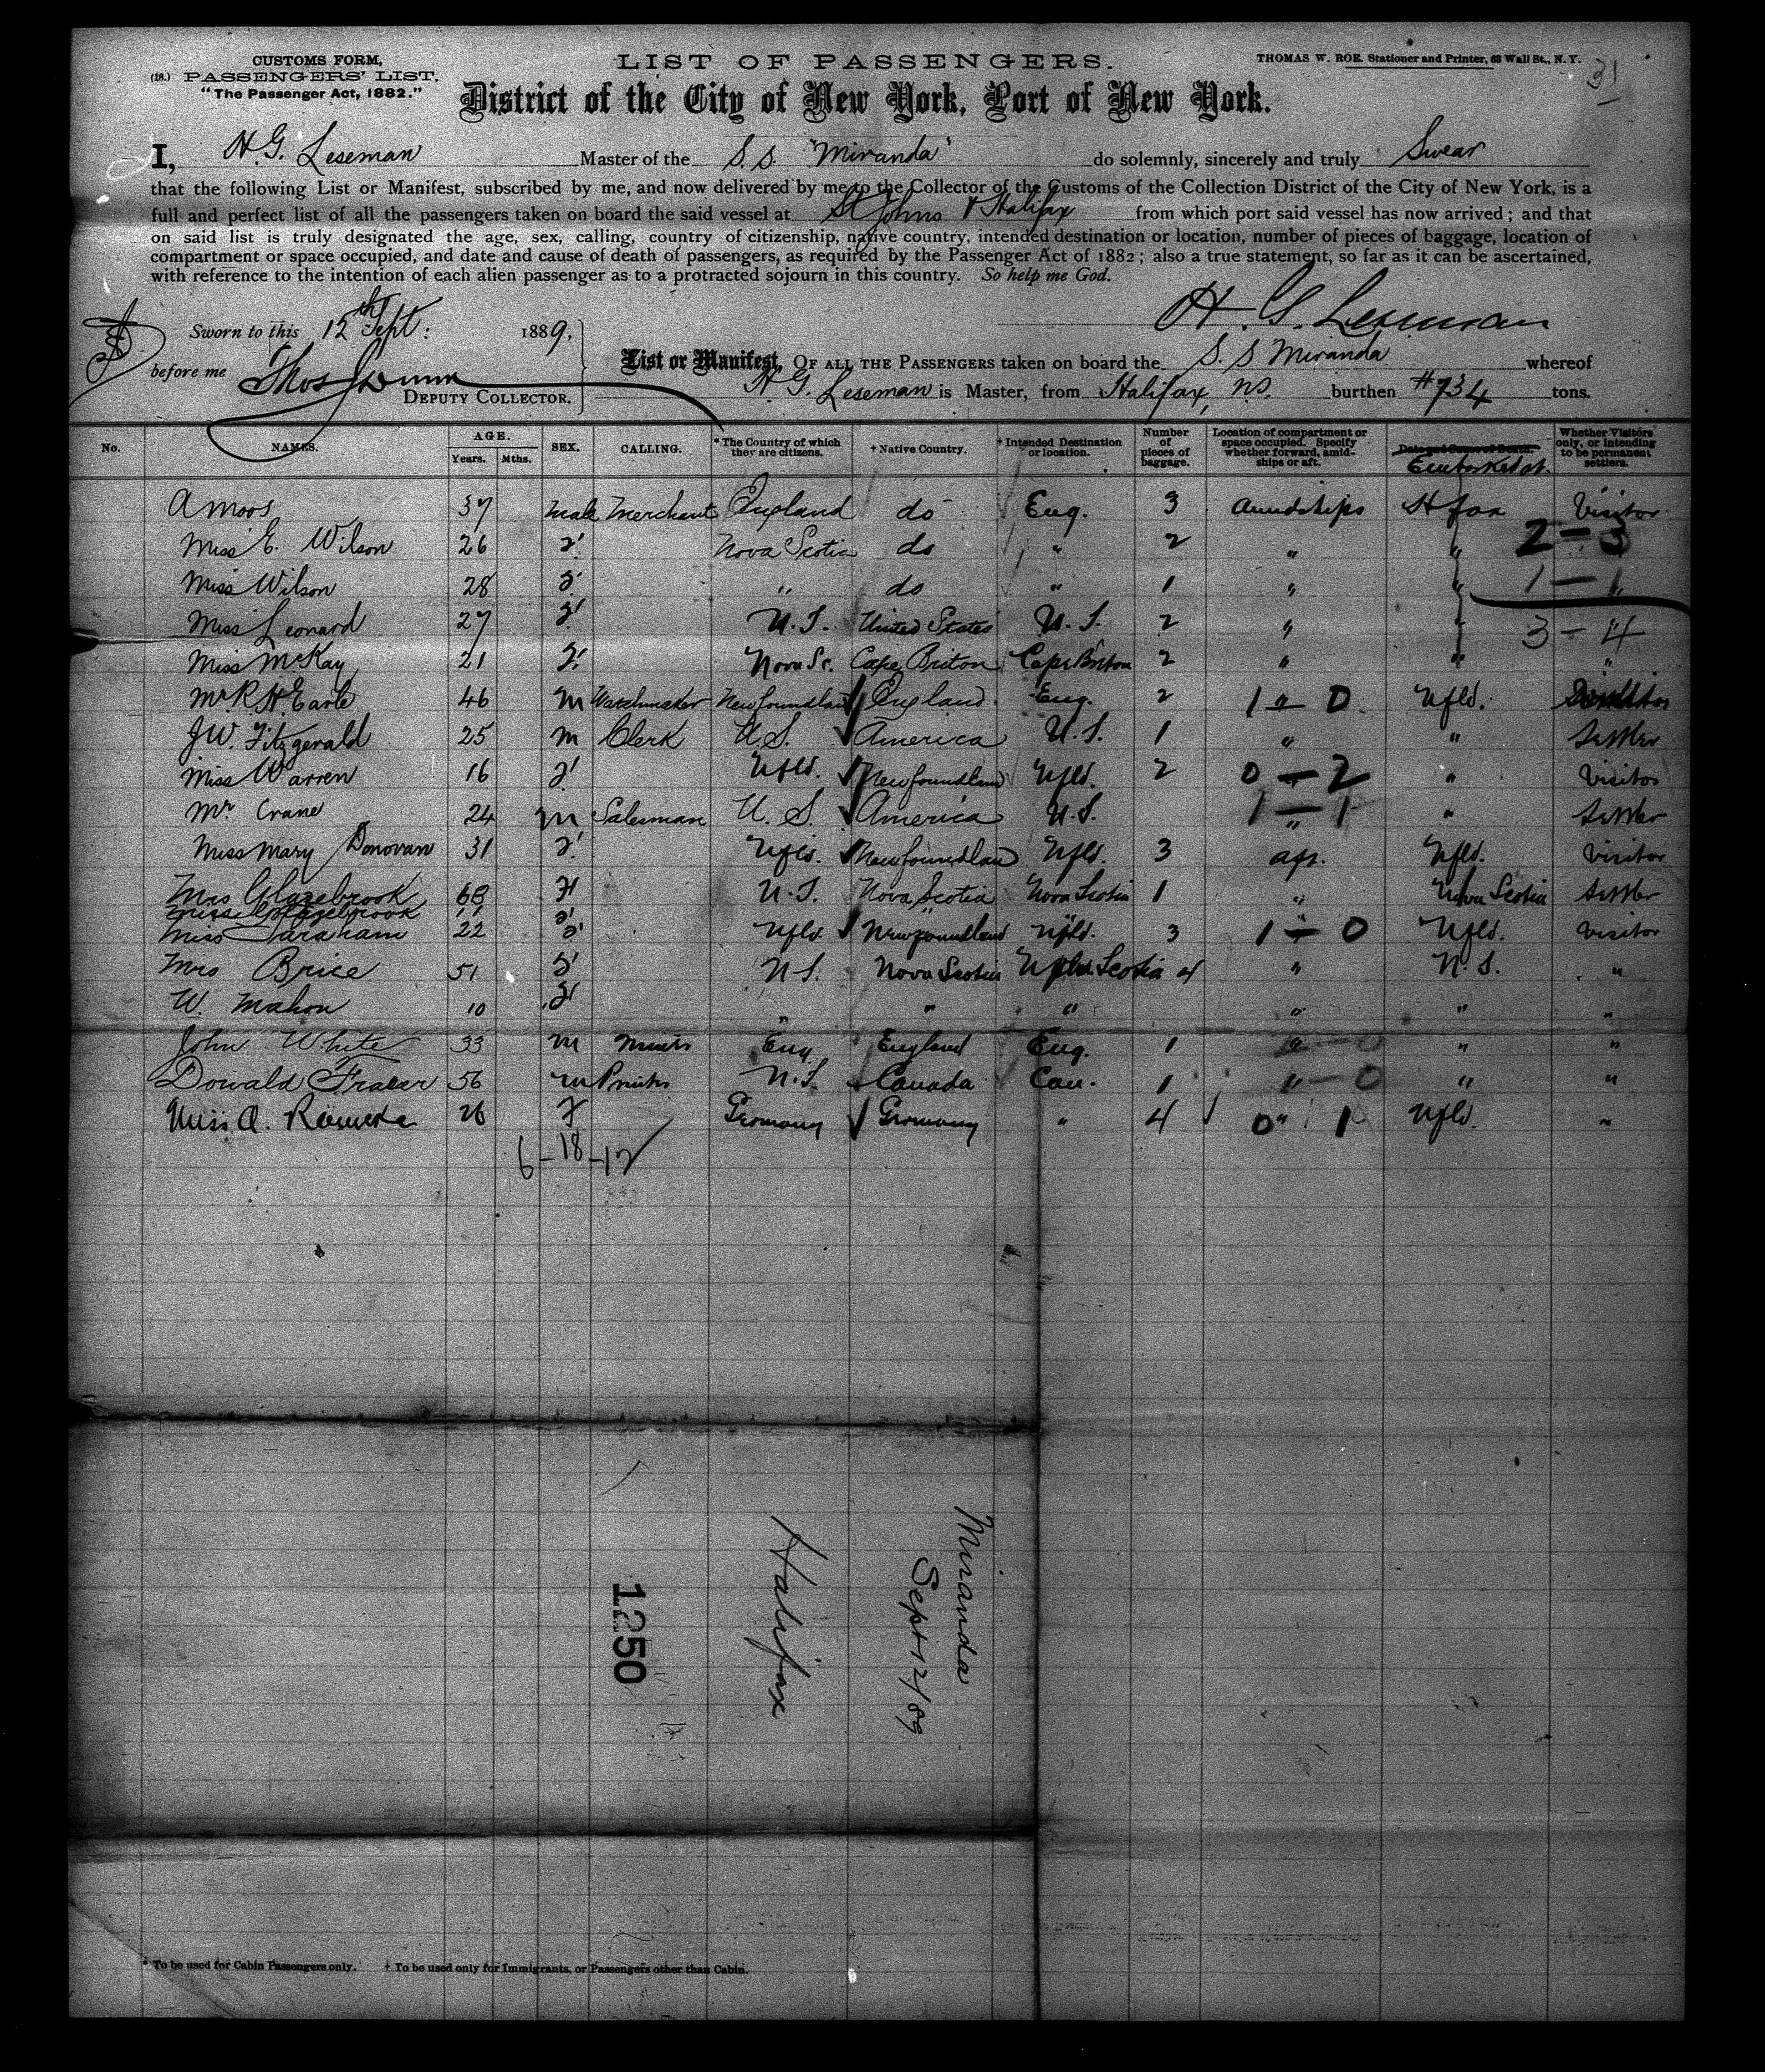 CUSTOMS FORM, LIST OF PASSENGERS. THOMAS W. ROE. Stationer and Printer, 63 Wall St., N. Y.
(18.) PASSENGERS' LIST, 31
"The Passenger Act, 1882."
District of the City of New York, Port of New York.
I, H. G. Leseman Master of the S. S. "Miranda" do solemnly, sincerely and truly Swear
that the following List or Manifest, subscribed by me, and now delivered by me to the Collector of the Customs of the Collection District of the City of New York, is a
full and perfect list of all the passengers taken on board the said vessel at St Johns & Halifax from which port said vessel has now arrived; and that
on said list is truly designated the age, sex, calling, country of citizenship, native country, intended destination or location, number of pieces of baggage, location of
compartment or space occupied, and date and cause of death of passengers, as required by the Passenger Act of 1882; also a true statement, so far as it can be ascertained,
with reference to the intention of each alien passenger as to a protracted sojourn in this country. So help me God.
H. G. Leseman
Sworn to this 12th Sept: 1889,
List or Manifest, OF ALL THE PASSENGERS taken on board the S. S Miranda whereof
before me Thos J Dunn
H G. Leseman is Master, from Halifax, NS. burthen #734 tons.
DEPUTY COLLECTOR.
No. NAMES. AGE. Years. Mths. SEX. CALLING. * The Country of which they are citizens. † Native Country. † Intended Destination or location. Number of pieces of baggage. Location of compartment or space occupied. Specify whether forward, amidships or aft. Date and Cause of Death. Embarked at. Whether Visitors only, or intending to be permanent settlers.
A Moos 37 Male Merchant England do Eng. 3 Amidships Hfax Visitor
Miss E. Wilson 26 F Nova Scotia do " 2 " " 2 - 3
Miss Wilson 28 F " do " 1 " " 1 - 1 "
Miss Leonard 27 F U. S. United States U. S. 2 " " 3 - 4 "
Miss McKay 21 F Nova Sc. Cape Briton Cape Briton 2 " " "
Mr R H Earle 46 M Watchmaker Newfoundland England. Eng. 2 1 " 0 Nfld.
J W. Fitzgerald 25 M Clerk U. S. America U. S. 1 " " Settler
Miss Warren 16 F Nfld. Newfoundland Nfld. 2 0 - 2 " Visitor
Mr Crane 24 M Salesman U. S. America U. S. 1 - 1 " " Settler
Miss Mary Donovan 31 F Nfld. Newfoundland Nfld. 3 aft. Nfld. Visitor
Mrs Glazebrook 68 F N. S. Nova Scotia Nova Scotia 1 " Nova Scotia Settler
Miss Glazebrook 11 F " "
Miss Taraham 22 F Nfld. Newfoundland Nfld. 3 1 - 0 Nfld. Visitor
Mrs Brice 51 F N S. Nova Scotia Scotia 4 " N. S. "
W. Mahon 10 F " " " " " "
John White 33 M Eng England Eng. 1 " 0 " "
Donald Fraser 56 M N. S Canada Can. 1 " 0 " "
Miss A. 26 F Germany Germany " 4 0 " 1 Nfld. "
6-18-12
Miranda
Sept 12/89
Halifax
1250
* To be used for Cabin Passengers only. † To be used only for Immigrants, or Passengers other than Cabin.